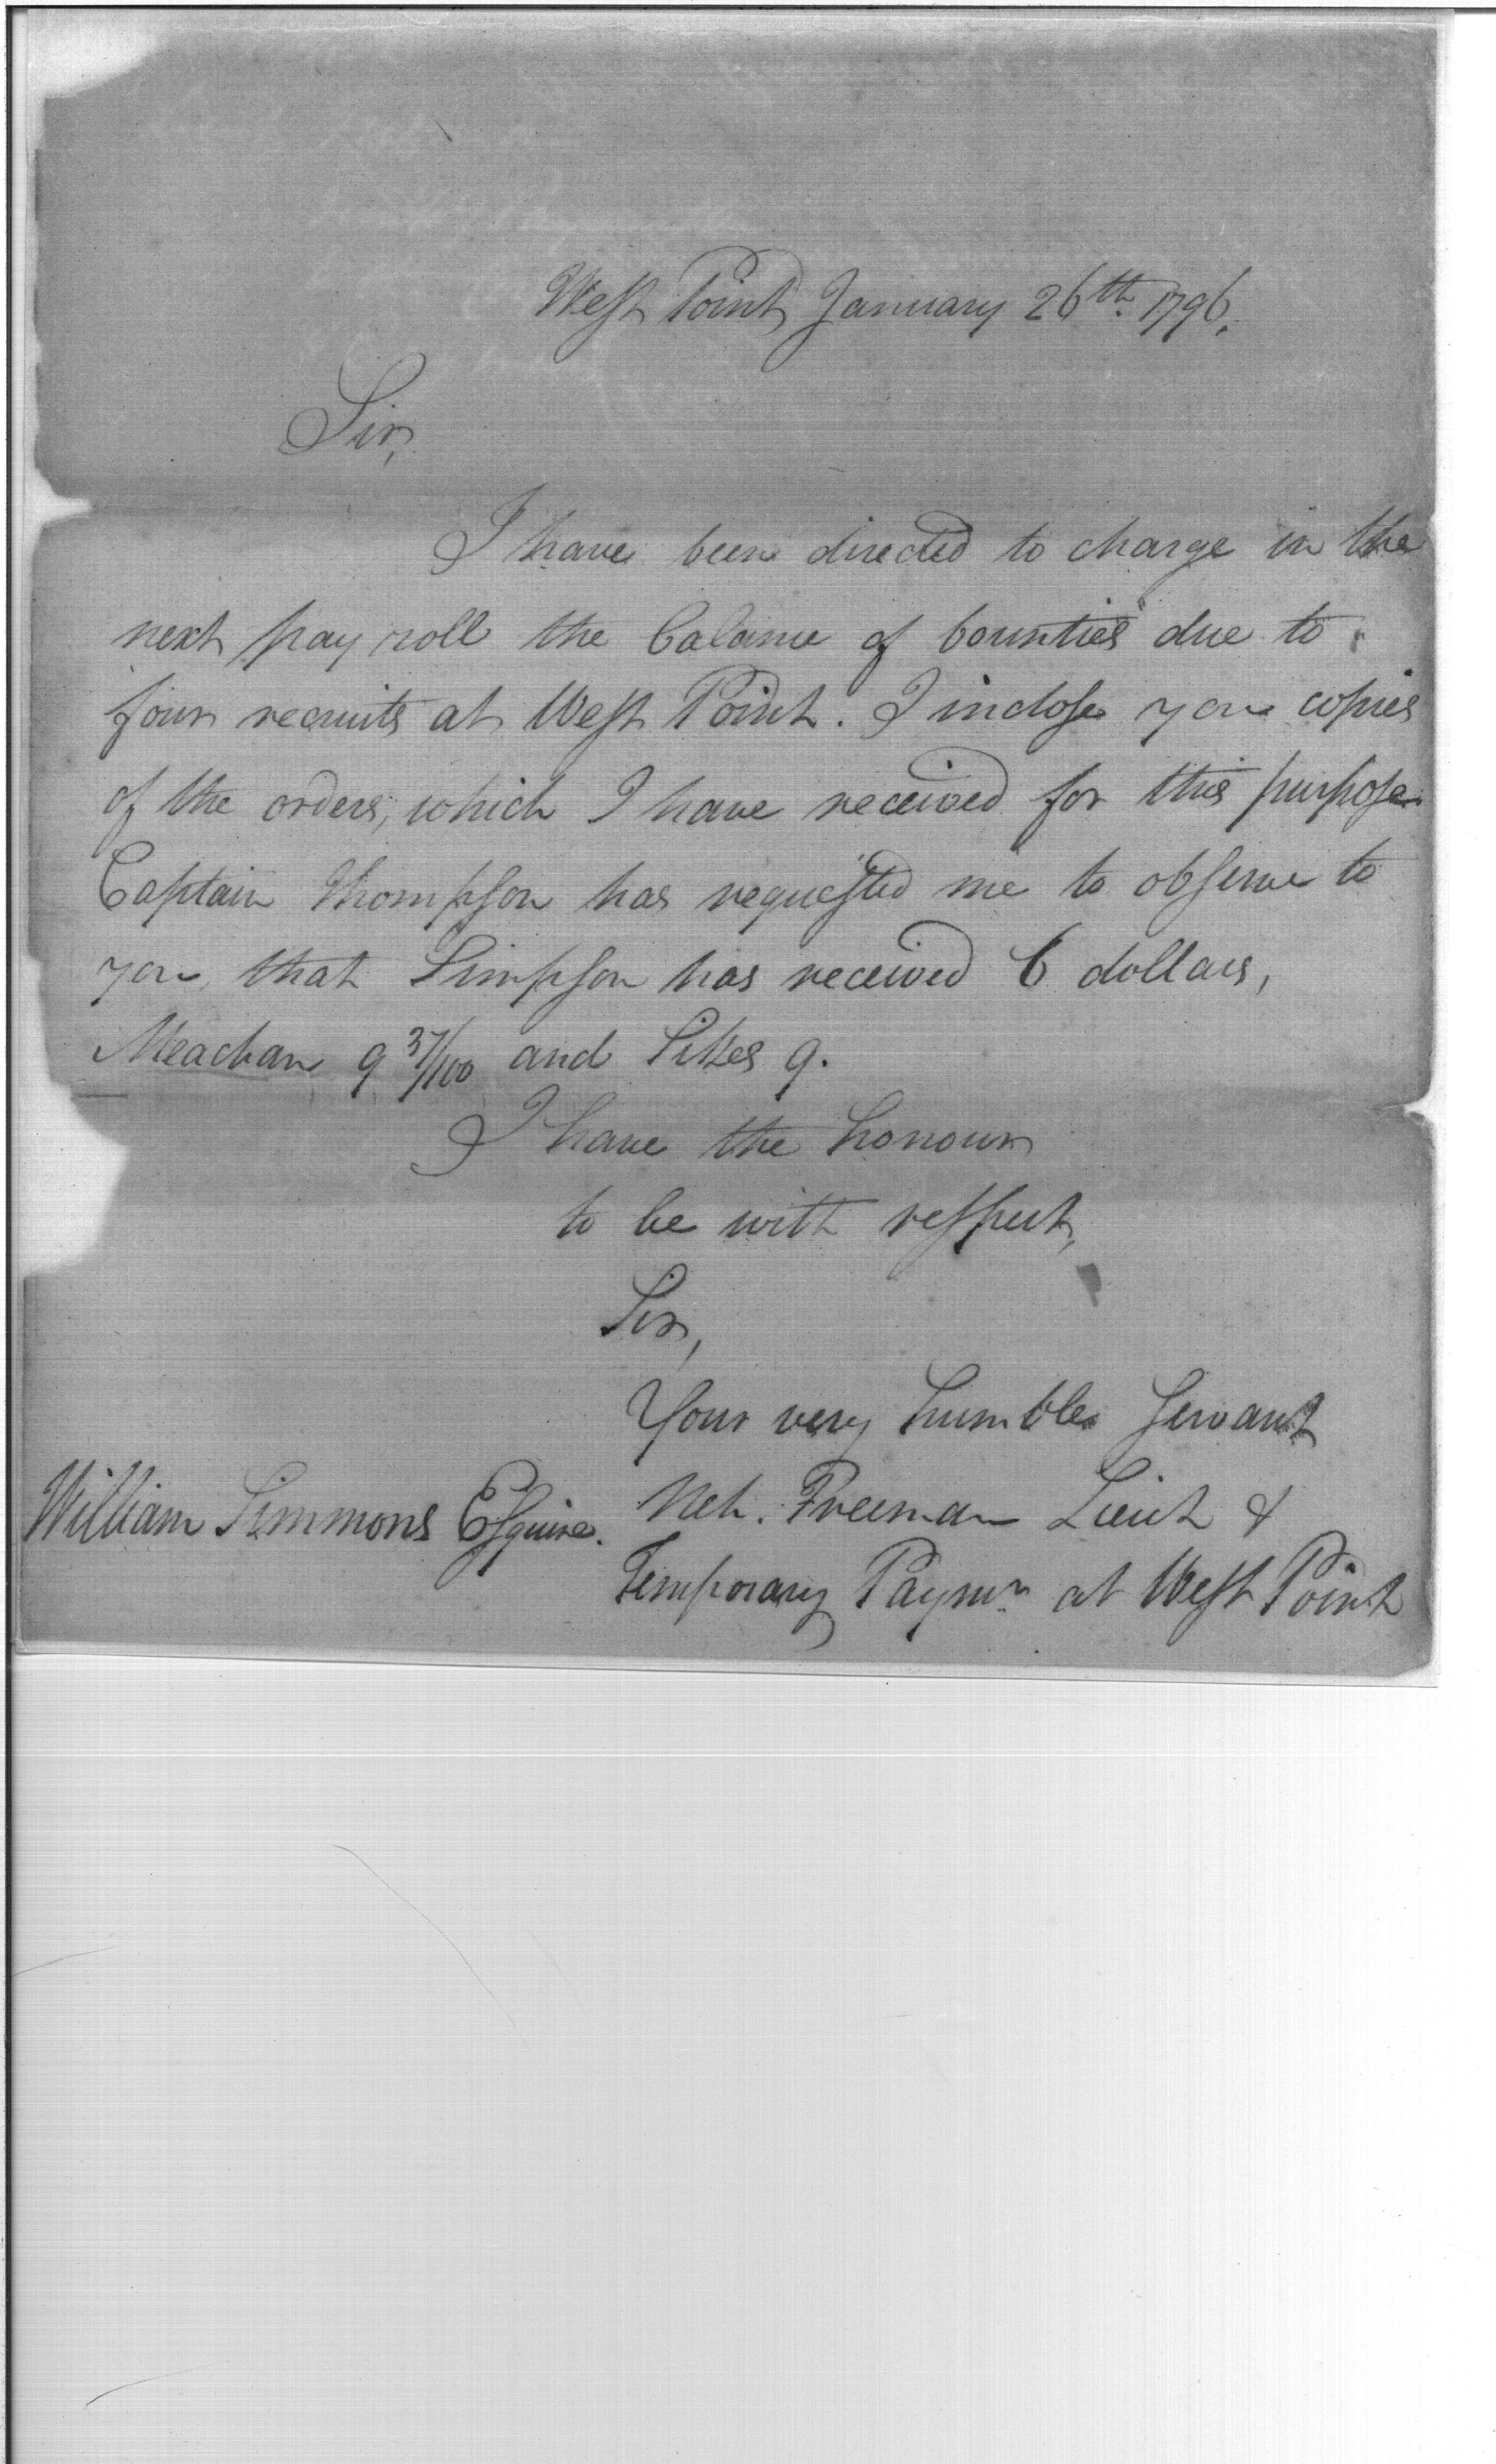 West Point January 26th 1796.
Sir,
I have been directed to charge in the
next pay roll the balance of bounties due to
four recruits at West Point. I inclose you copies
of the orders, which I have received for this purpose.
Captain Thompson has requested me to observe to
you, that Simpson has received 6 dollars,
Meachan 9 37/100 and Sikes 9.
I have the honour
to be with respect,
Sir,
Your very humble servant
William Simmons Esquire. Neh. Freeman Lieut &
Temporary Paymr. at West Point